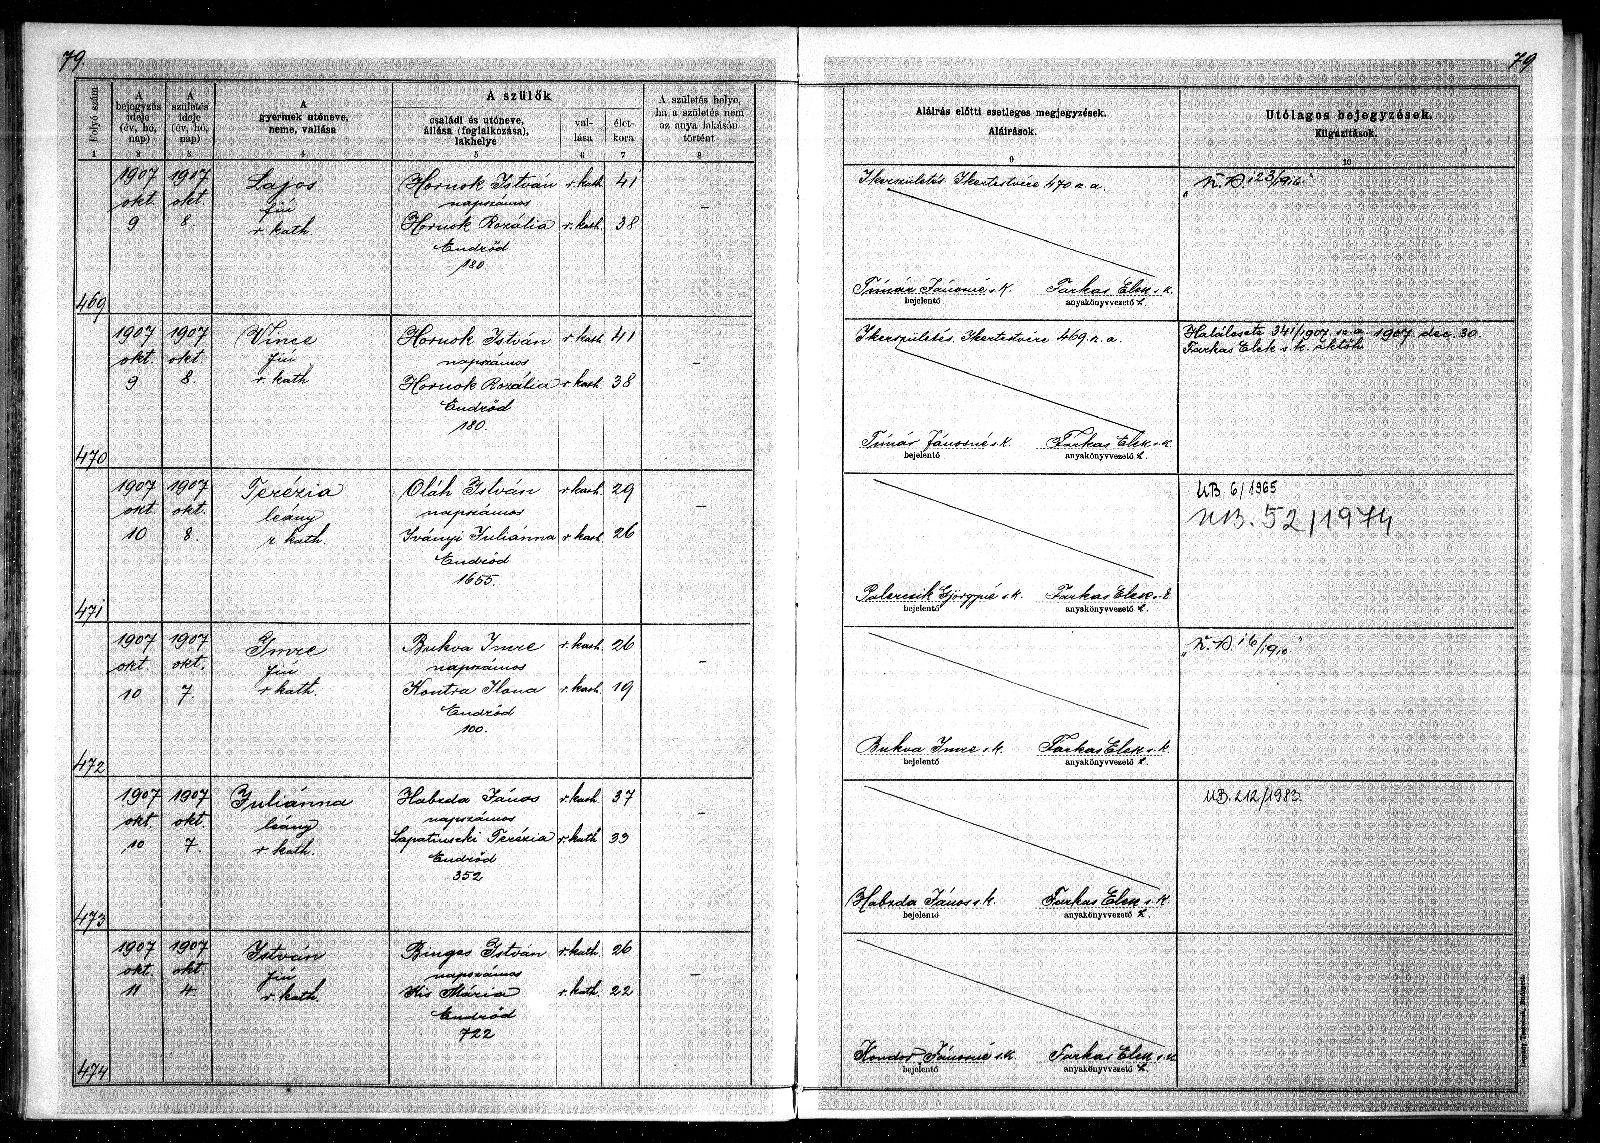 79
79
Folyó szám
A bejegyzés ideje (év, hó, nap)
A születés ideje (év, hó, nap)
A gyermek utóneve, neme, vallása
A szülők
családi és utóneve, állása (foglalkozása), lakhelye
vallása
életkora
A születés helye, ha a születés nem az anya lakásán történt
Aláírás előtti esetleges megjegyzések.
Aláírások.
Utólagos bejegyzések.
Kiigazítások.
1 2 3 4 5 6 7 8 9 10
469
1907 okt 9
1907 okt 8.
Lajos
fiú
r. kath
Hornok István r. kath 41
napszámos
Hornok Rozália r. kath. 38
Endrőd
180
–
Ikerszületés Ikertestvére 470 a. a.
Tímár Jánosné s. k. Farkas Elek s. k.
bejelentő anyakönyvvezető h.
470
1907 okt. 9
1907 okt. 8.
Vince
fiú
r. kath
Hornok István r. kath 41
napszámos
Hornok Rozália r. kath 38
Endrőd
180.
–
Ikerszületés. Ikertestvére 469. a. a.
Tímár Jánosné s. k. Farkas Elek s. k.
bejelentő anyakönyvvezető h.
Halálesete 341/1907 sz. a. 1907. dec. 30.
Farkas Elek s. k.
471
1907 okt 10
1907 okt. 8.
Terézia
leány
r. kath.
Oláh István r. kath. 29
napszámos
Iványi Juliánna r. kath 26
Endrőd
1655.
–
s. k. Farkas Elek s. k
bejelentő anyakönyvvezető h.
UB 6/1965
UB. 52/1974
472
1907 okt 10
1907 okt. 7.
Imre
fiú
r. kath.
Bukva Imre r. kath. 26
napszámos
Kontra Ilona r. kath. 19
Endrőd
100.
–
Bukva Imre s. k. Farkas Elek s. k.
bejelentő anyakönyvvezető h.
473
1907 okt. 10
1907 okt. 7.
Juliánna
leány
r. kath.
Habzda János r. kath 37
napszámos
Lapatinszki Terézia r. kath 33
Endrőd
352
–
Habzda János s. k. Farkas Elek s. k.
bejelentő anyakönyvvezető h.
UB. 212/1983.
474
1907 okt. 11
1907 okt 4.
István
fiú
r. kath.
Binges István r. kath. 26
napszámos
Kis Mária r. kath. 22
Endrőd
722
–
Kondor Jánosné s. k. Farkas Elek s. k
bejelentő anyakönyvvezető h.